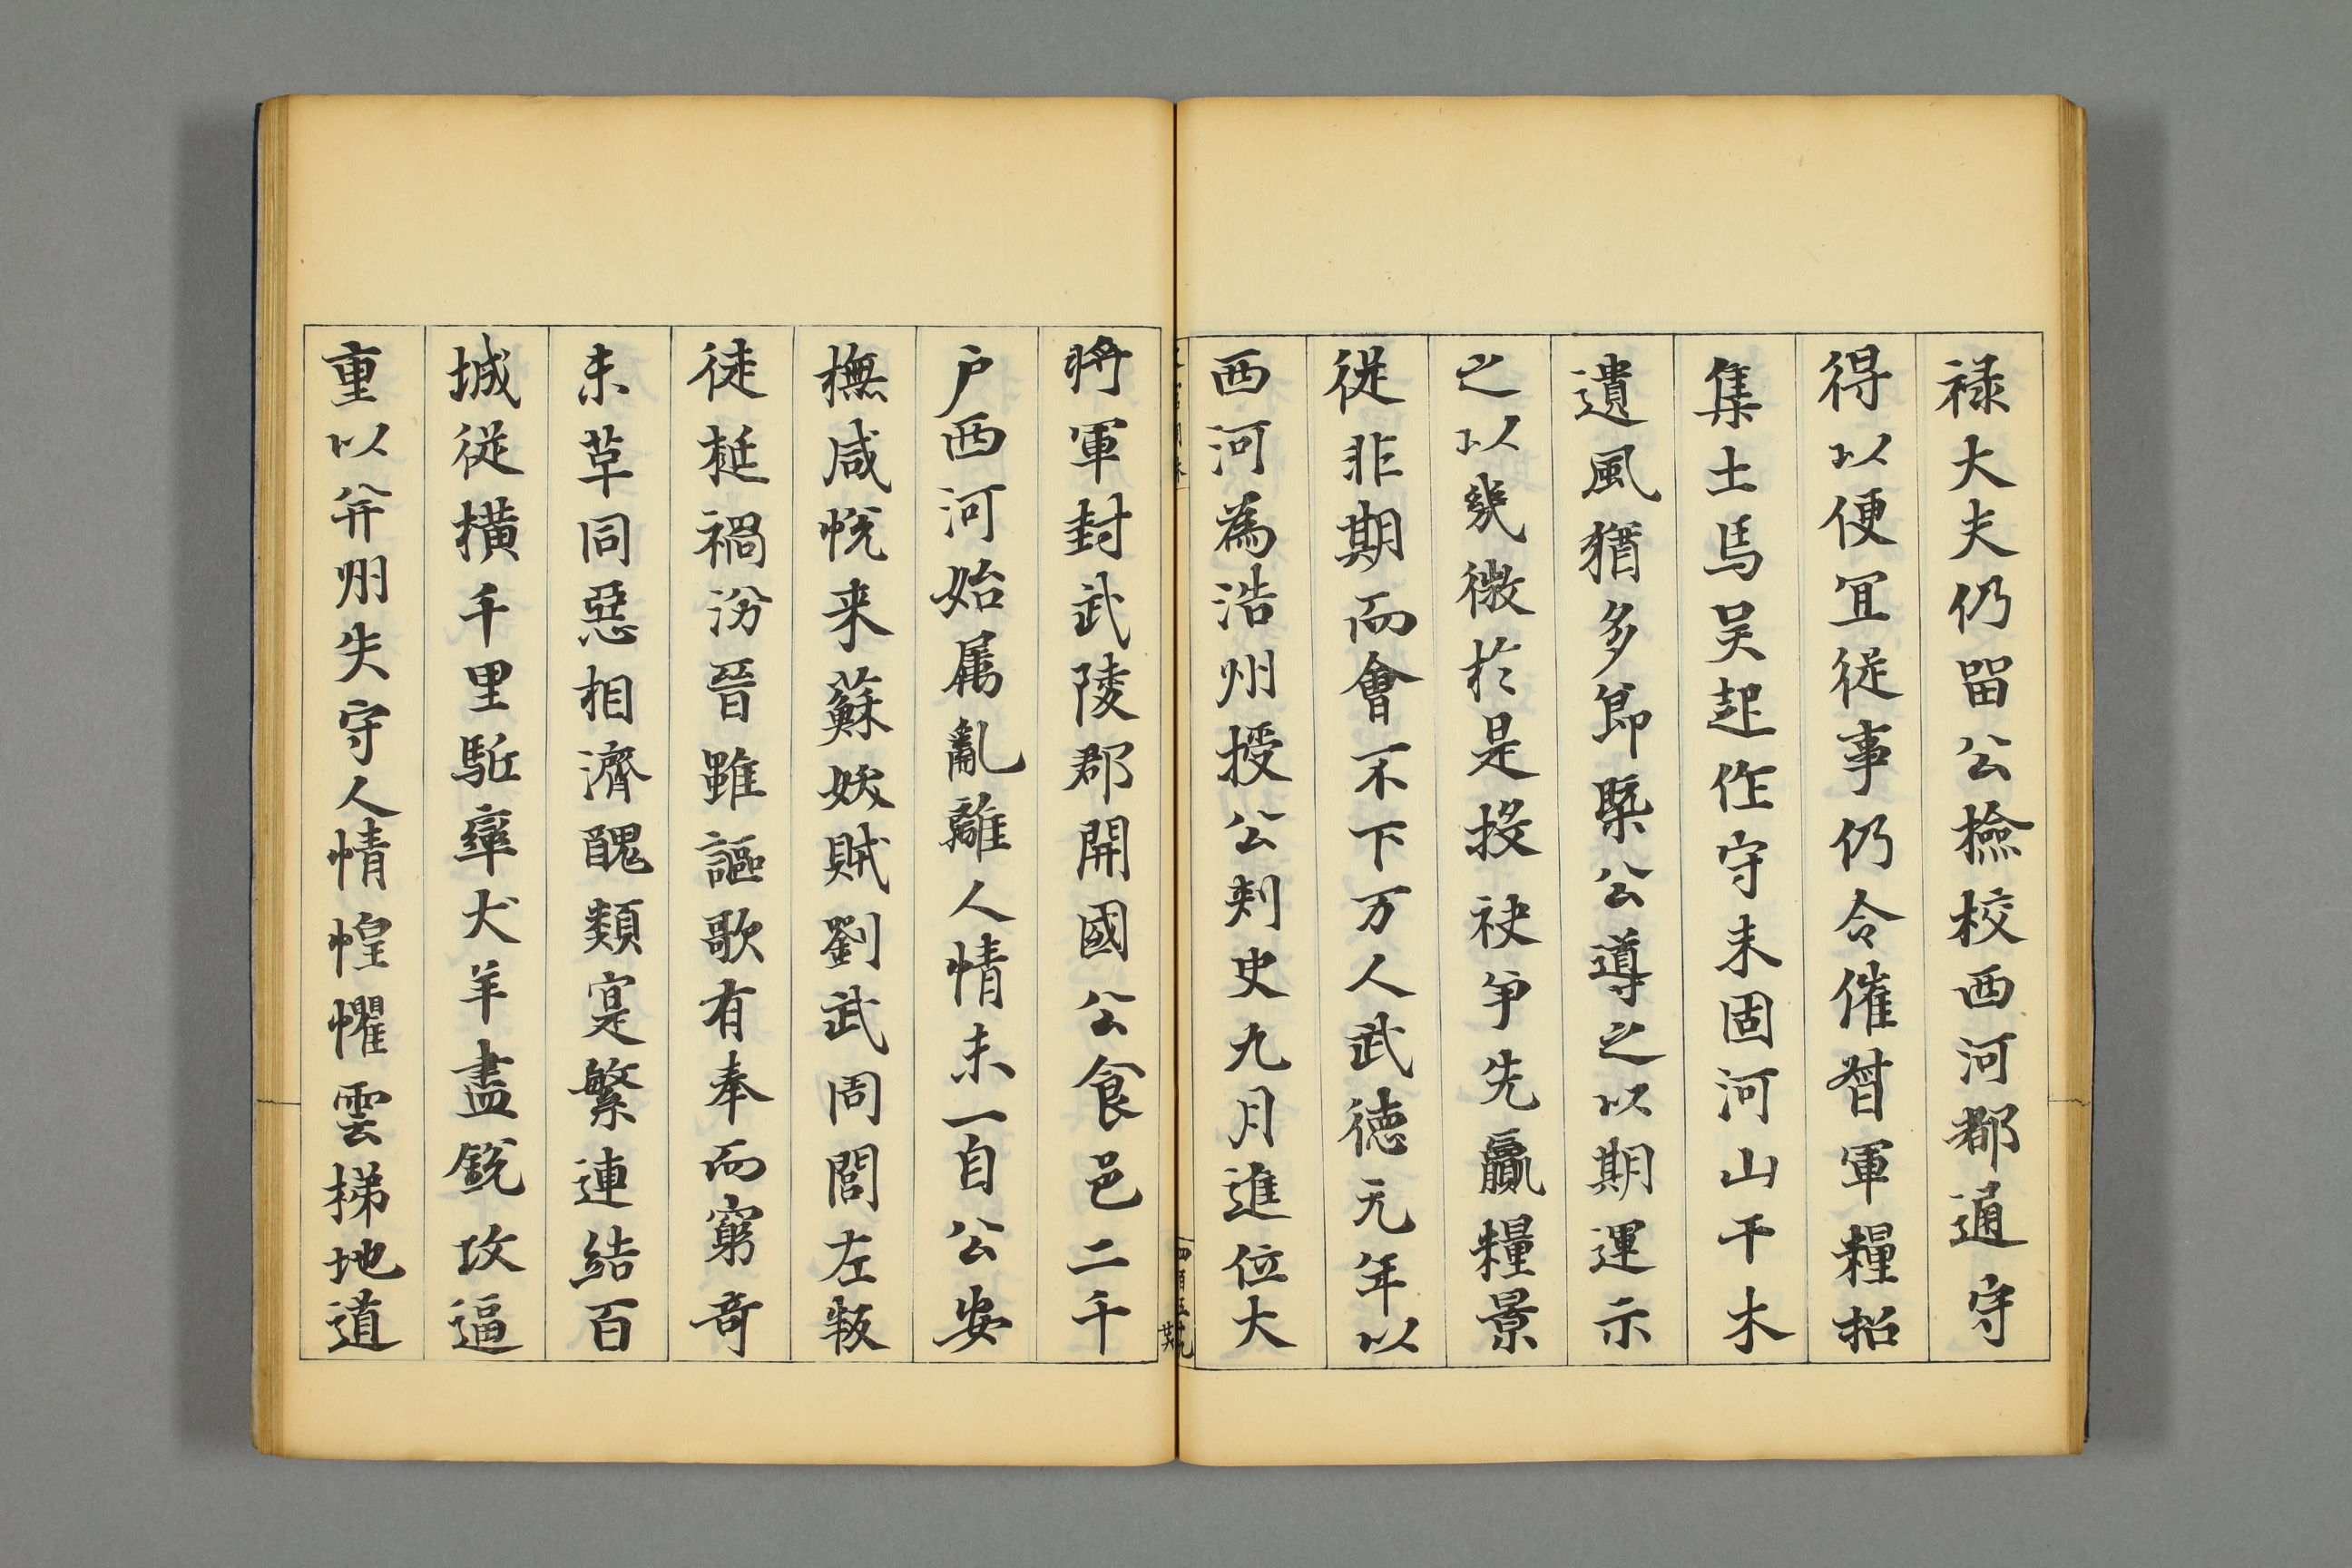 禄大夫仍留公撿校西河郡通守
得以便冝従事仍令催督軍糧招
集士馬吴起作守未固河山干木
遺風猶多節槩公導之以期運示
之以幾微於是投袂争先贏糧景
従非期而會不下万人武徳元年以
西河為浩州授公刾史九月進位大
将軍封武陵郡開國公食邑二千
户西河始属亂離人情未一自公安
撫咸恱来蘇妖賊劉武周閻左叛
徒挻禍汾晉雖謳歌有奉而窮竒
未草同惡相濟醜類寔繁連結百
城従横千里駈率犬羊盡銳攻逼
重以并州失守人情惶懼雲梯地道